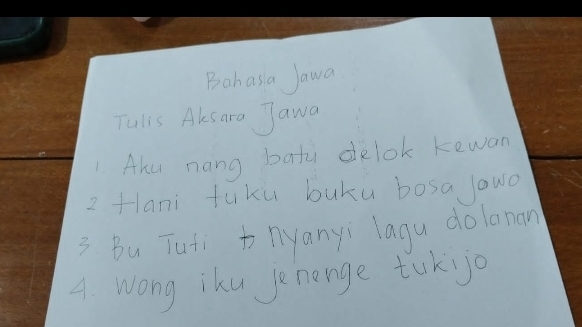 Bahasa Jawa
Tulis Aksara Jawa
1. Aku nang batu delok kewan
2 Hani tuku buku bosa jowo
3 Bu Tuti nyanyi lagu dolanan
4. Wong iku jenenge tukijo